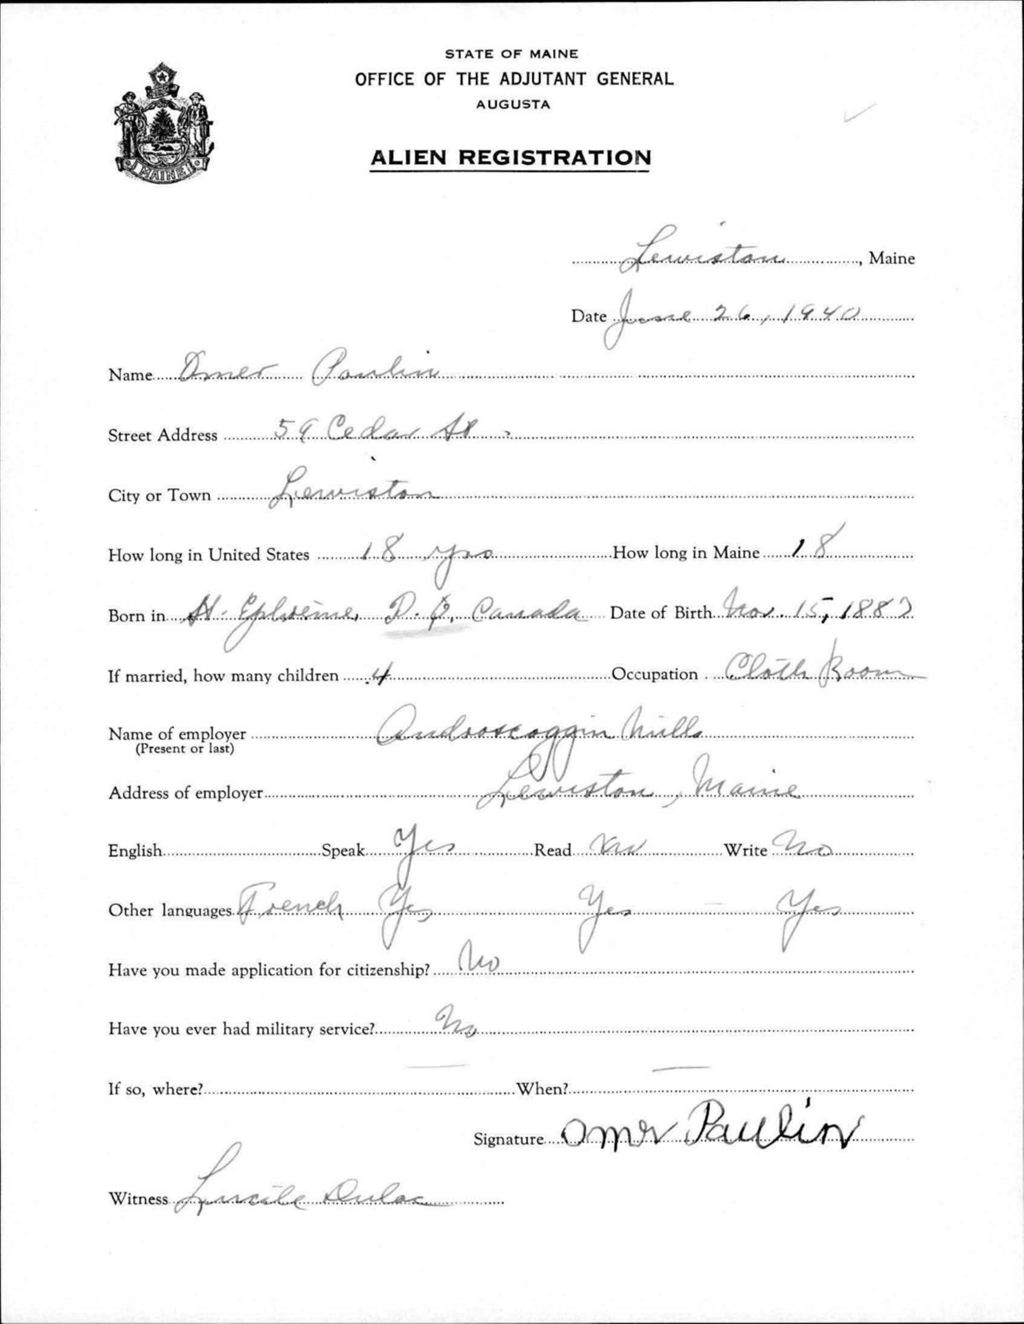 STATE OF MAINE
OFFICE OF THE ADJUTANT GENERAL
AUGUSTA
ALIEN REGISTRATION
MAINE
Lewiston, Maine
Date June 26, 1940
Name Omer Paulin
Street Address 59 Cedar St.
City or Town Lewiston
How long in United States 18 yrs How long in Maine 18
Born in St. Ephrème, P.Q. Canada Date of Birth Nov. 15, 1887
If married, how many children 4 Occupation Cloth Room
Name of employer Androscoggin Mills
(Present or last)
Address of employer Lewiston, Maine
English Speak Yes Read No Write No
Other languages French Yes Yes Yes
Have you made application for citizenship? No
Have you ever had military service? No
If so, where? — When? —
Signature Omer Paulin
Witness Lucile Dulac